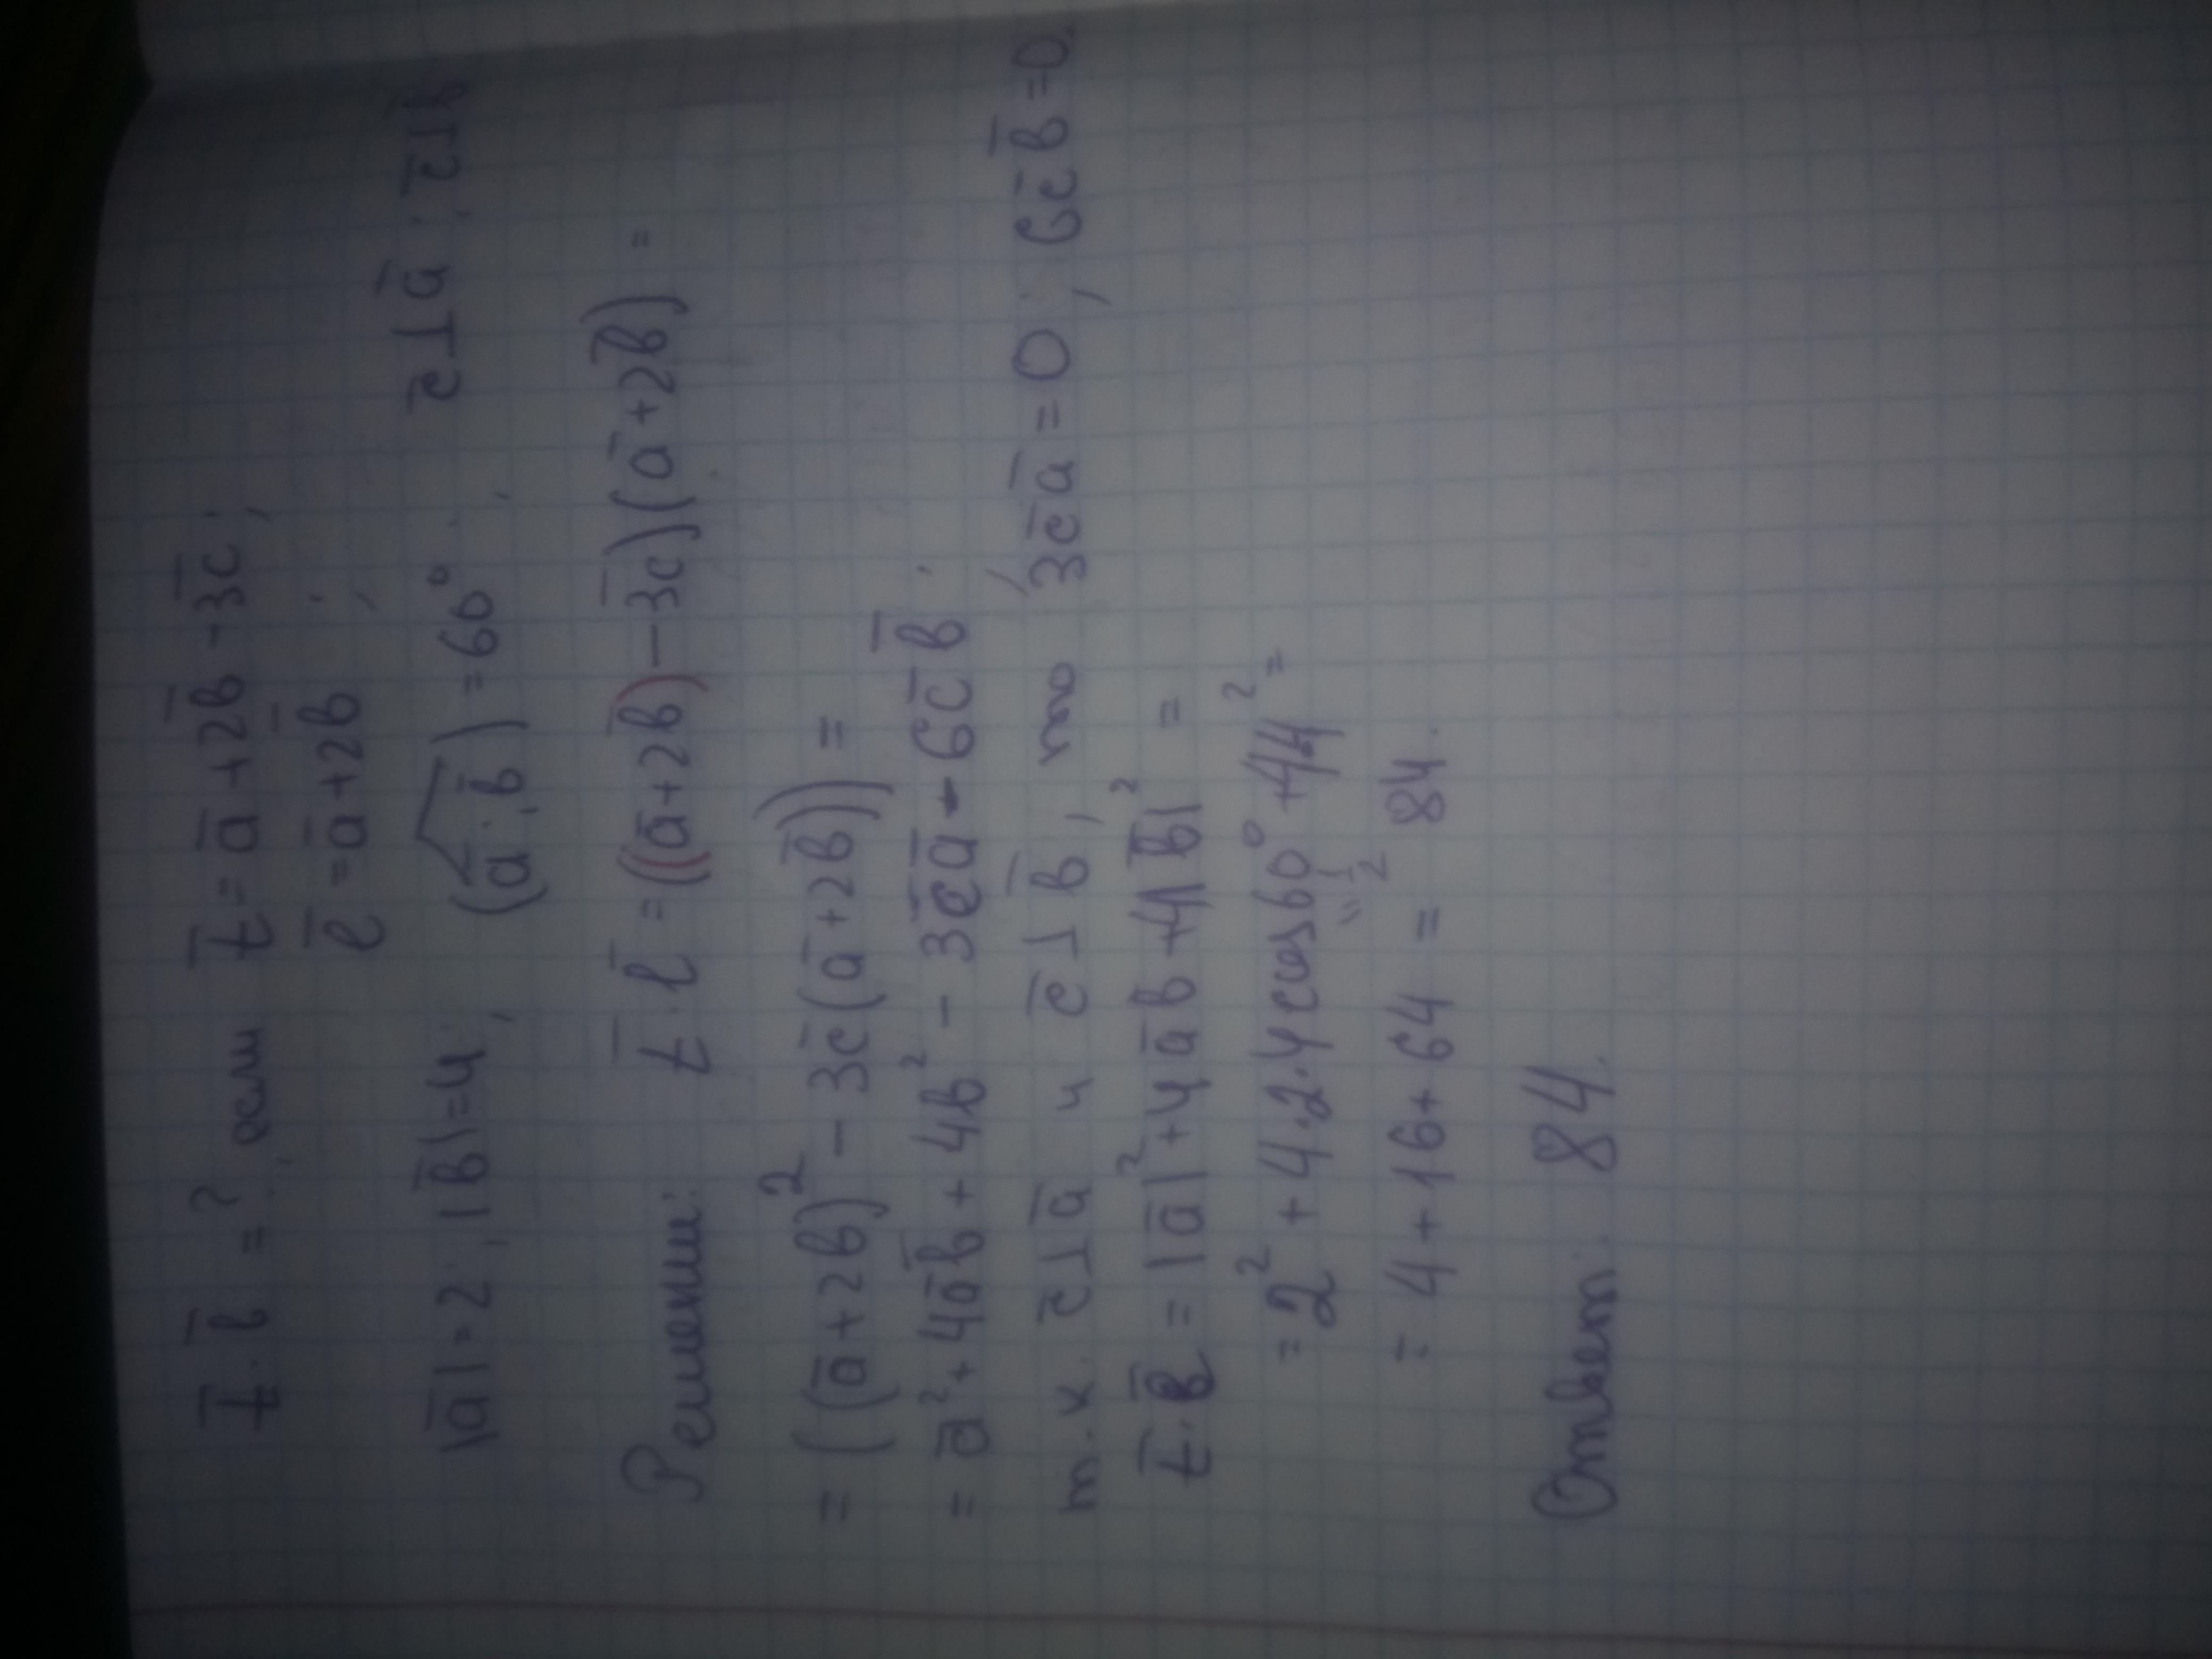 t̄ · l̄ = ?, если t̄ = ā + 2b̄ - 3c̄;
l̄ = ā + 2b̄;
|ā| = 2; |b̄| = 4; (ā; b̄) = 60°; c̄ ⊥ ā; c̄ ⊥ b̄
Решение: t̄ · l̄ = ((ā + 2b̄) - 3c̄)(ā + 2b̄) =
= ((ā + 2b)² - 3c̄(ā + 2b̄)) =
= ā² + 4āb̄ + 4b² - 3c̄ā - 6c̄b̄;
т.к. c̄ ⊥ ā и c̄ ⊥ b̄, то 3c̄ā = 0; 6c̄b̄ = 0
t̄ · l̄ = |ā|² + 4āb + 4|b̄|² =
= 2² + 4·2·4cos60° + 4·4² =
" 1/2
= 4 + 16 + 64 = 84.
Ответ: 84.